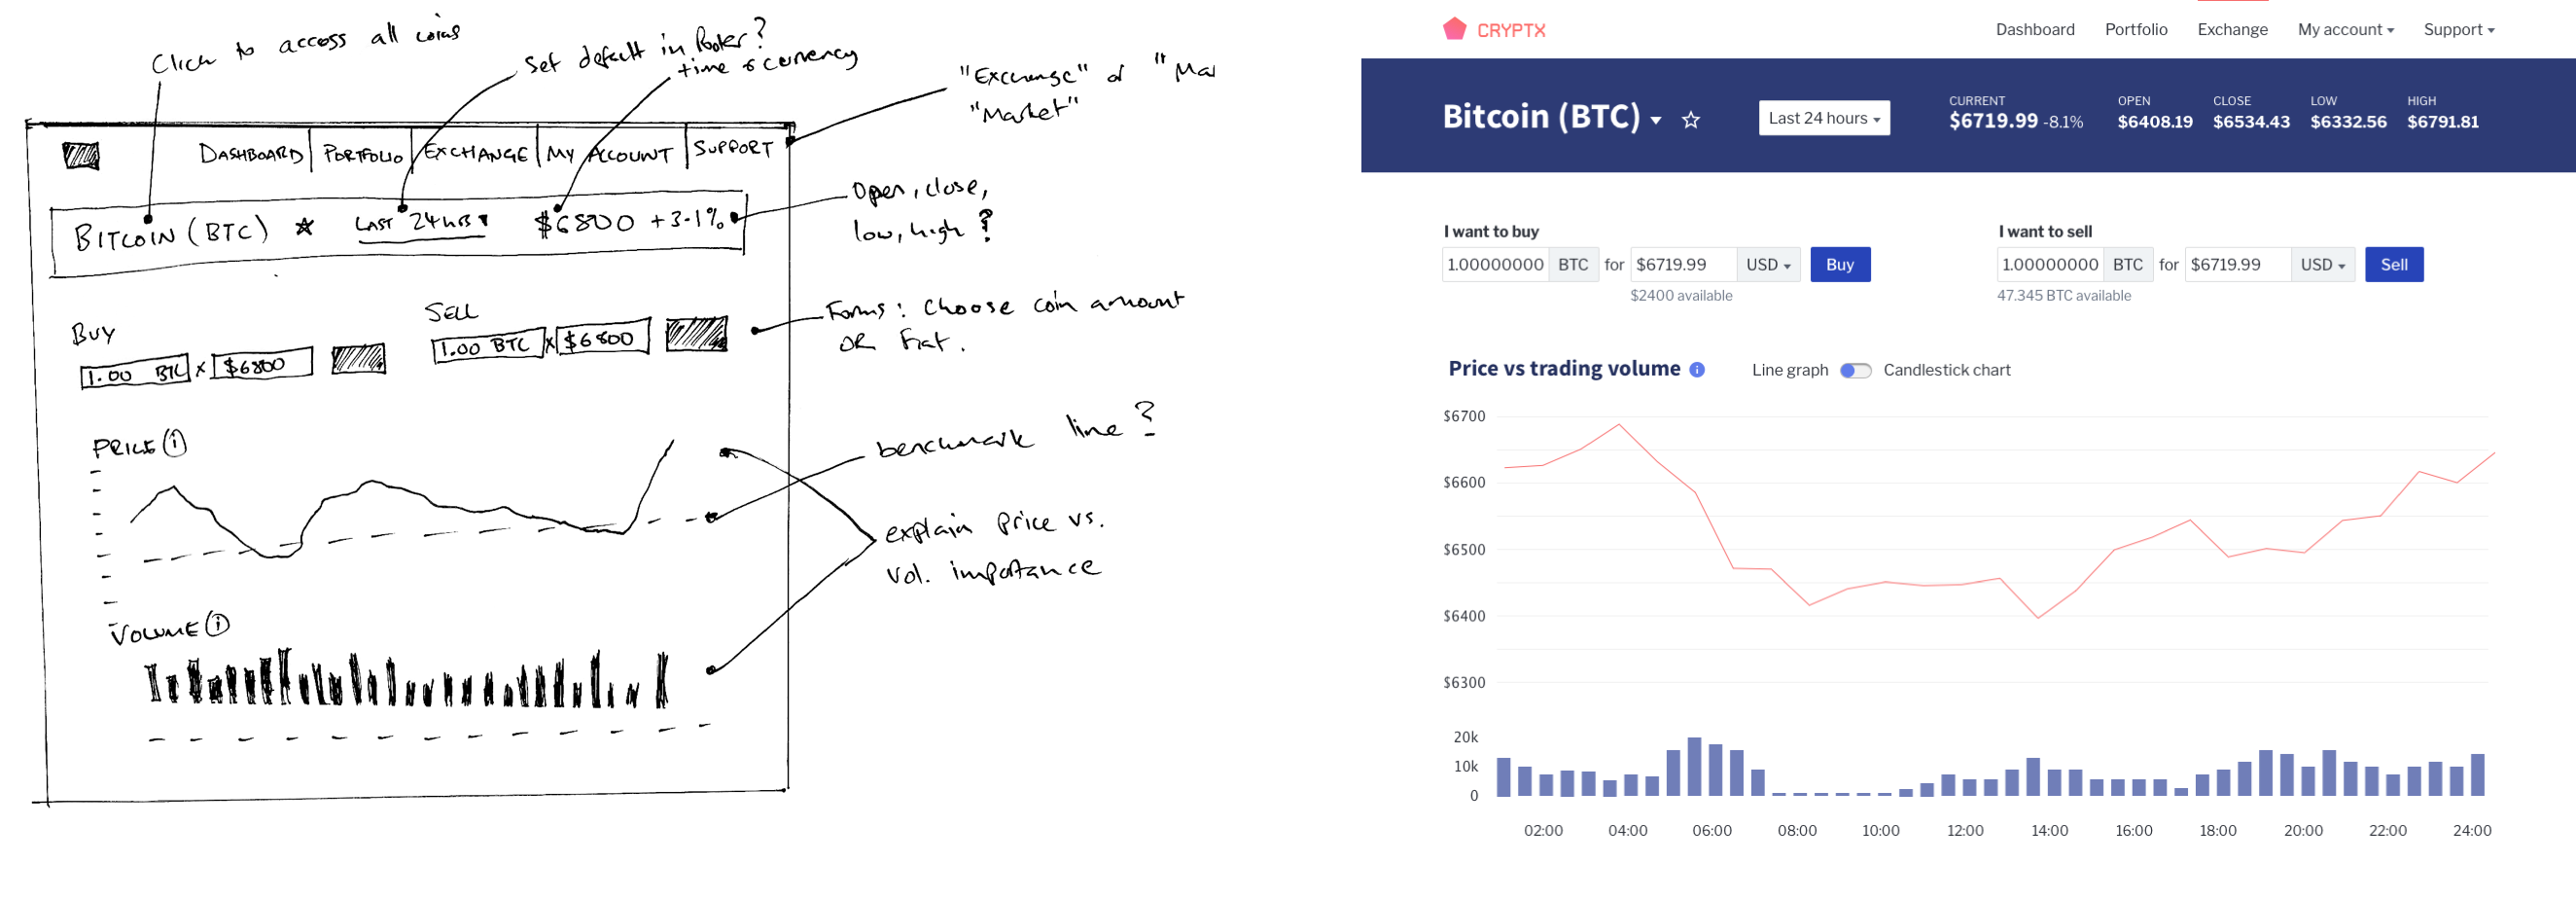 Click to access all coins
Set default in footer?
time & currency
"Exchange" or "Mar
"Market"
DASHBOARD PORTFOLIO EXCHANGE MY ACCOUNT SUPPORT
BITCOIN (BTC) LAST 24HRS $6800 +3.1%
Open, close,
low, high ?
BUY
1.00 BTC x $6800
SELL
1.00 BTC x $6800
Forms: Choose coin amount
OR Fiat.
PRICE i
benchmark line?
explain price vs.
vol. importance
VOLUME i
CRYPTX
Dashboard Portfolio Exchange My account Support
Bitcoin (BTC)
Last 24 hours
CURRENT
$6719.99 -8.1%
OPEN
$6408.19
CLOSE
$6534.43
LOW
$6332.56
HIGH
$6791.81
I want to buy
1.00000000 BTC for $6719.99 USD Buy
$2400 available
I want to sell
1.00000000 BTC for $6719.99 USD Sell
47.345 BTC available
Price vs trading volume i
Line graph Candlestick chart
$6700
$6600
$6500
$6400
$6300
20k
10k
0
02:00 04:00 06:00 08:00 10:00 12:00 14:00 16:00 18:00 20:00 22:00 24:00